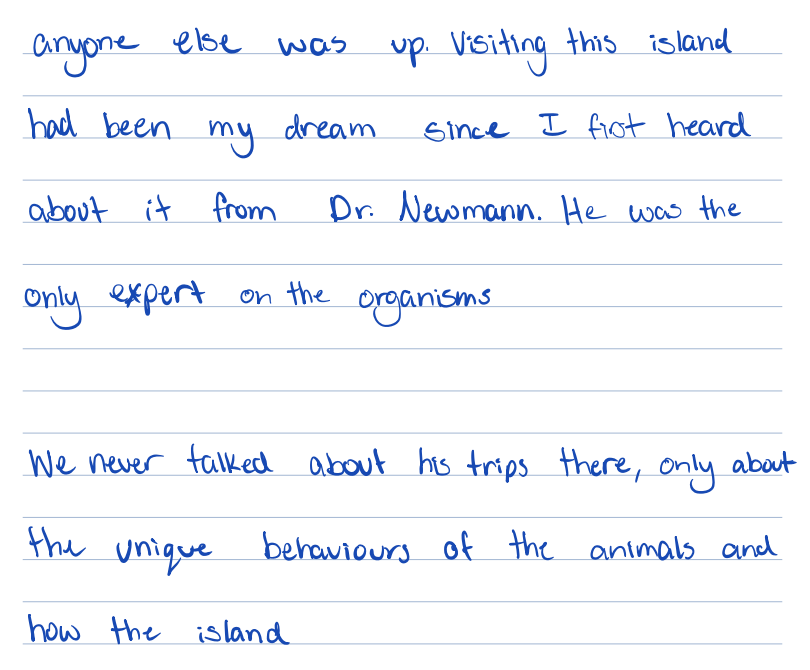 anyone else was up. Visiting this island
had been my dream since I first heard
about it from Dr. Newmann. He was the
only expert on the organisms
We never talked about his trips there, only about
the unique behaviours of the animals and
how the island